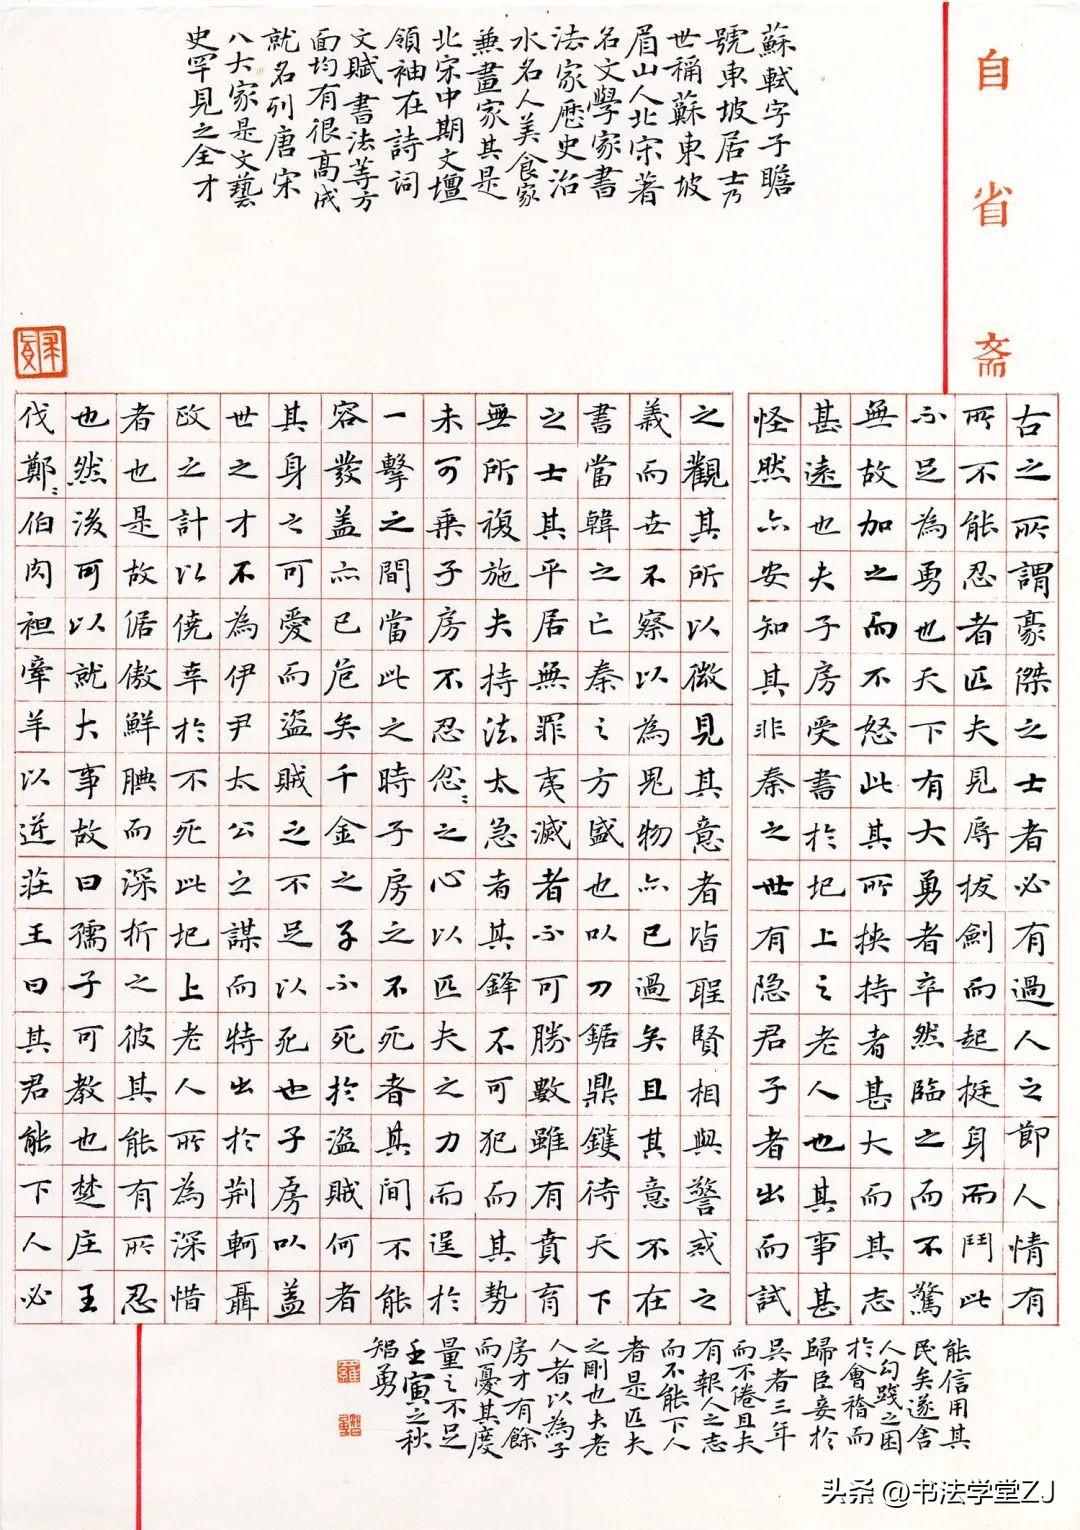 自省斋
蘇軾字子瞻
號東坡居士乃
世稱蘇東坡
眉山人北宋著
名文學家書
法家歷史治
水名人美食家
兼畫家其是
北宋中期文壇
領袖在詩詞
文賦書法等方
面均有很高成
就名列唐宋
八大家是文藝
史罕見之全才
古之所謂豪傑之士者必有過人之節人情有
所不能忍者匹夫見辱拔劍而起挺身而鬥此
不足為勇也天下有大勇者卒然臨之而不驚
無故加之而不怒此其所挾持者甚大而其志
甚遠也夫子房受書於圯上之老人也其事甚
怪然亦安知其非秦之世有隐君子者出而試
之觀其所以微見其意者皆聖賢相與警戒之
義而世不察以為鬼物亦已過矣且其意不在
書當韓之亡秦之方盛也以刀鋸鼎鑊待天下
之士其平居無罪夷滅者不可勝數雖有賁育
無所複施夫持法太急者其鋒不可犯而其勢
未可乘子房不忍忿〻之心以匹夫之力而逞於
一擊之間當此之時子房之不死者其间不能
容發盖亦已危矣千金之子不死於盗賊何者
其身之可愛而盜賊之不足以死也子房以盖
世之才不為伊尹太公之謀而特出於荆軻聶
政之計以僥幸於不死此圯上老人所為深惜
者也是故倨傲鮮腆而深折之彼其能有所忍
也然後可以就大事故曰孺子可教也楚庄王
伐鄭〻伯肉袒牽羊以逆莊王曰其君能下人必
能信用其
民矣遂舍
人勾踐之困
於會稽而
歸臣妾於
吳者三年
而不倦且夫
有報人之志
而不能下人
者是匹夫
之剛也夫老
人者以為子
房才有餘
而憂其度
量之不足
壬寅之秋
智勇
头条 @书法学堂ZJ